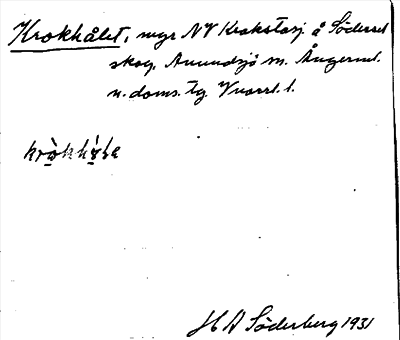 Krokhålet, myr NV Krokstasj. å Södersel
skog, Anundsjö sn. Ångerml.
n. doms. tg, Vnorrl. l.
kròkhó̱le
H A Söderberg 1931